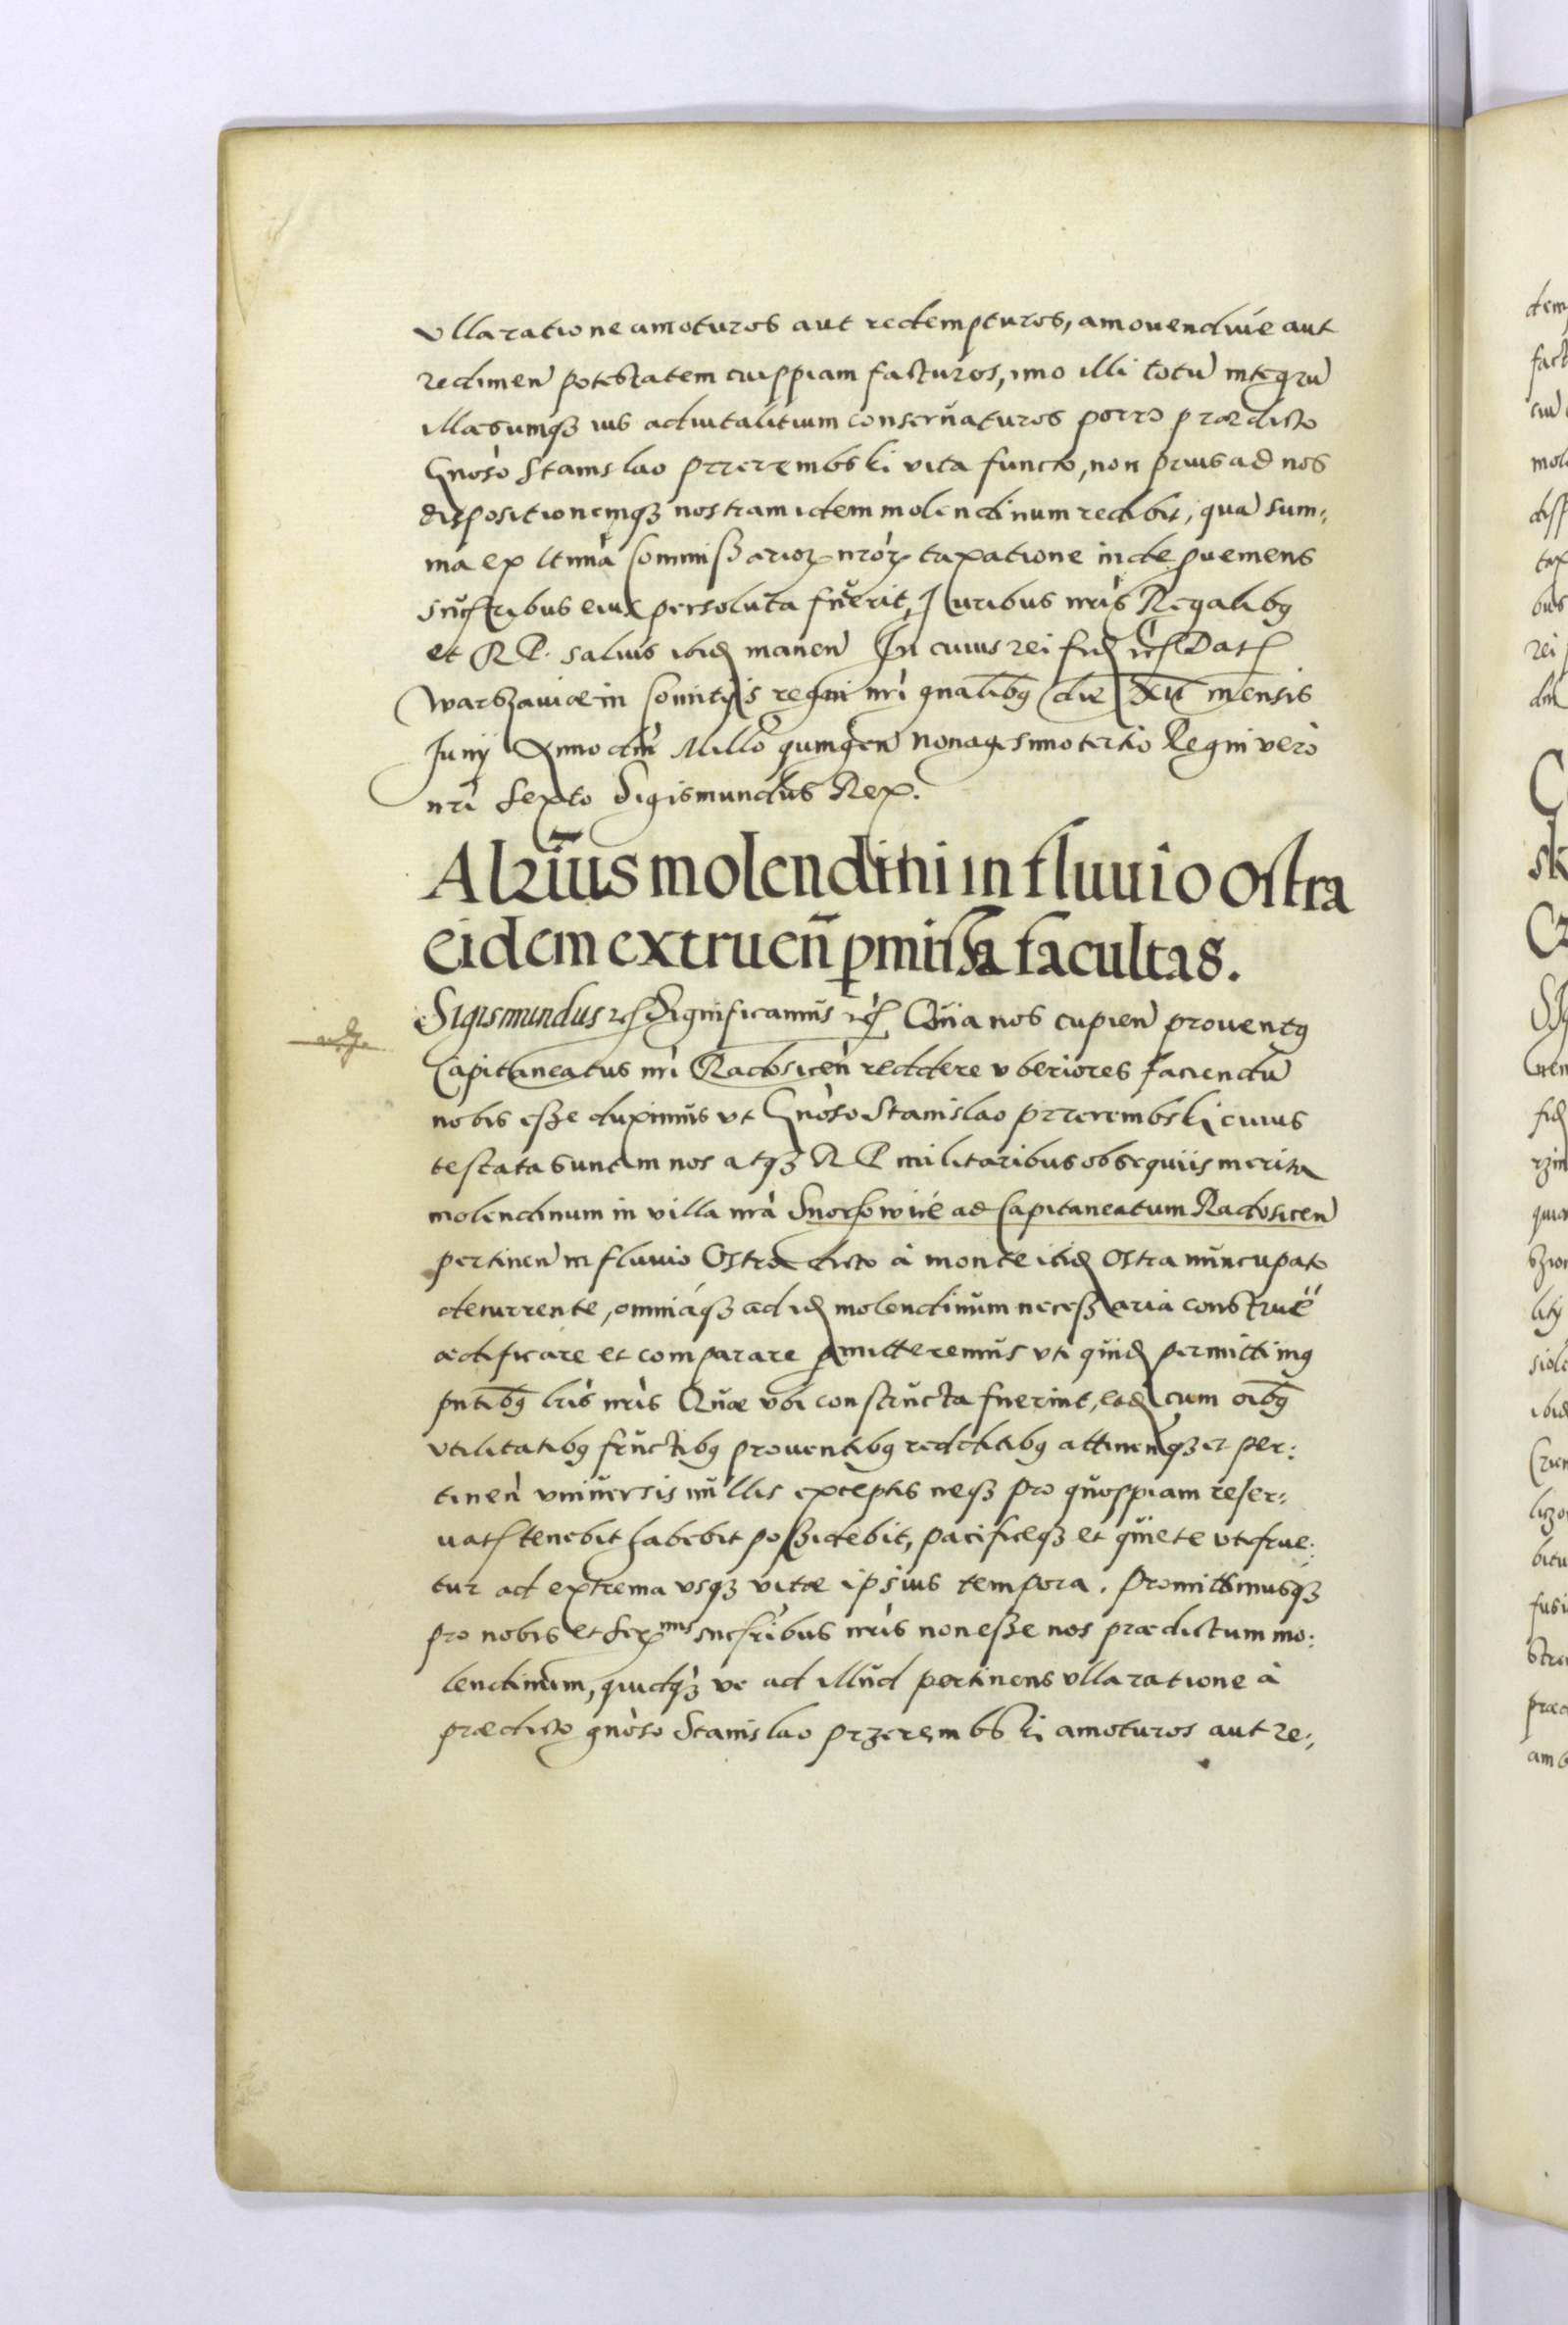 vlla ratione amoturos aut redempturos, amouendiue aut
redimen̄ potestatem cuippiam facturos, imo illi totū integrū
illaesumqȝ ius aduitalitium conseruaturos porro praedicto
Gnoso Stanislao Przerembski vita functo, non prius ad nos
dispositionemqȝ nostram idem molendinum redibit, quā sum:
ma ex ltima Commissarioꝝ nroꝝ taxatione inde puemens
sucribus eius persoluta fuerit, Iuribus nris Regalibꝰ
et R P. saluis ibid manen̄ In cuius rei fid etc Dat
Warszauiae in Comitijs regni nri gnalibꝰ die XII mensis
Junij Anno dni Millo quingen̄ nonagesimo tertio Regni vero
nri Sexto Sigismundus Rex.
Alterius molendini in fluuio ostra
eidem extruen̄ pmissa facultas.
Sigismundus etc Significamus etc Quia nos cupien̄ prouentꝰ
Capitaneatus nri Radosicen̄ reddere vberiores faciendū
nobis esse duximus vt Gnoso Stanislao Przerembski cuius
testata sunt in nos atqȝ R P militaribus obsequiis merita
molendinum in villa nra Snochowice ad Capitaneatum Radosicen̄
pertinen̄ in fluuio Ostra dicto à monte ibid Ostra nuncupato
decurrente, omniaqȝ ad id molendinum necessaria construe
aedificare et comparare pmitteremus vti quid permittimꝰ
pntibꝰ lris nris Quae vbi constructa fuerint, ead cum oibꝰ
vtilitatibꝰ fructibꝰ prouentibꝰ redditibꝰ attinen̄qȝ et per:
tinen̄ vniuersis nullis exceptis neqȝ pro quoppiam reser:
uat tenebit habebit possidebit, pacificeqȝ et quiete vtifrue:
tur ad extrema vsqȝ vitae ipsius tempora. Promittimusqȝ
pro nobis et Sermis sucribus nris non esse nos praedictum mo:
lendinum, quidqȝ ve ad illud pertinens vlla ratione à
praedicto gnoso Stanislao Przerembski amoturos aut re: